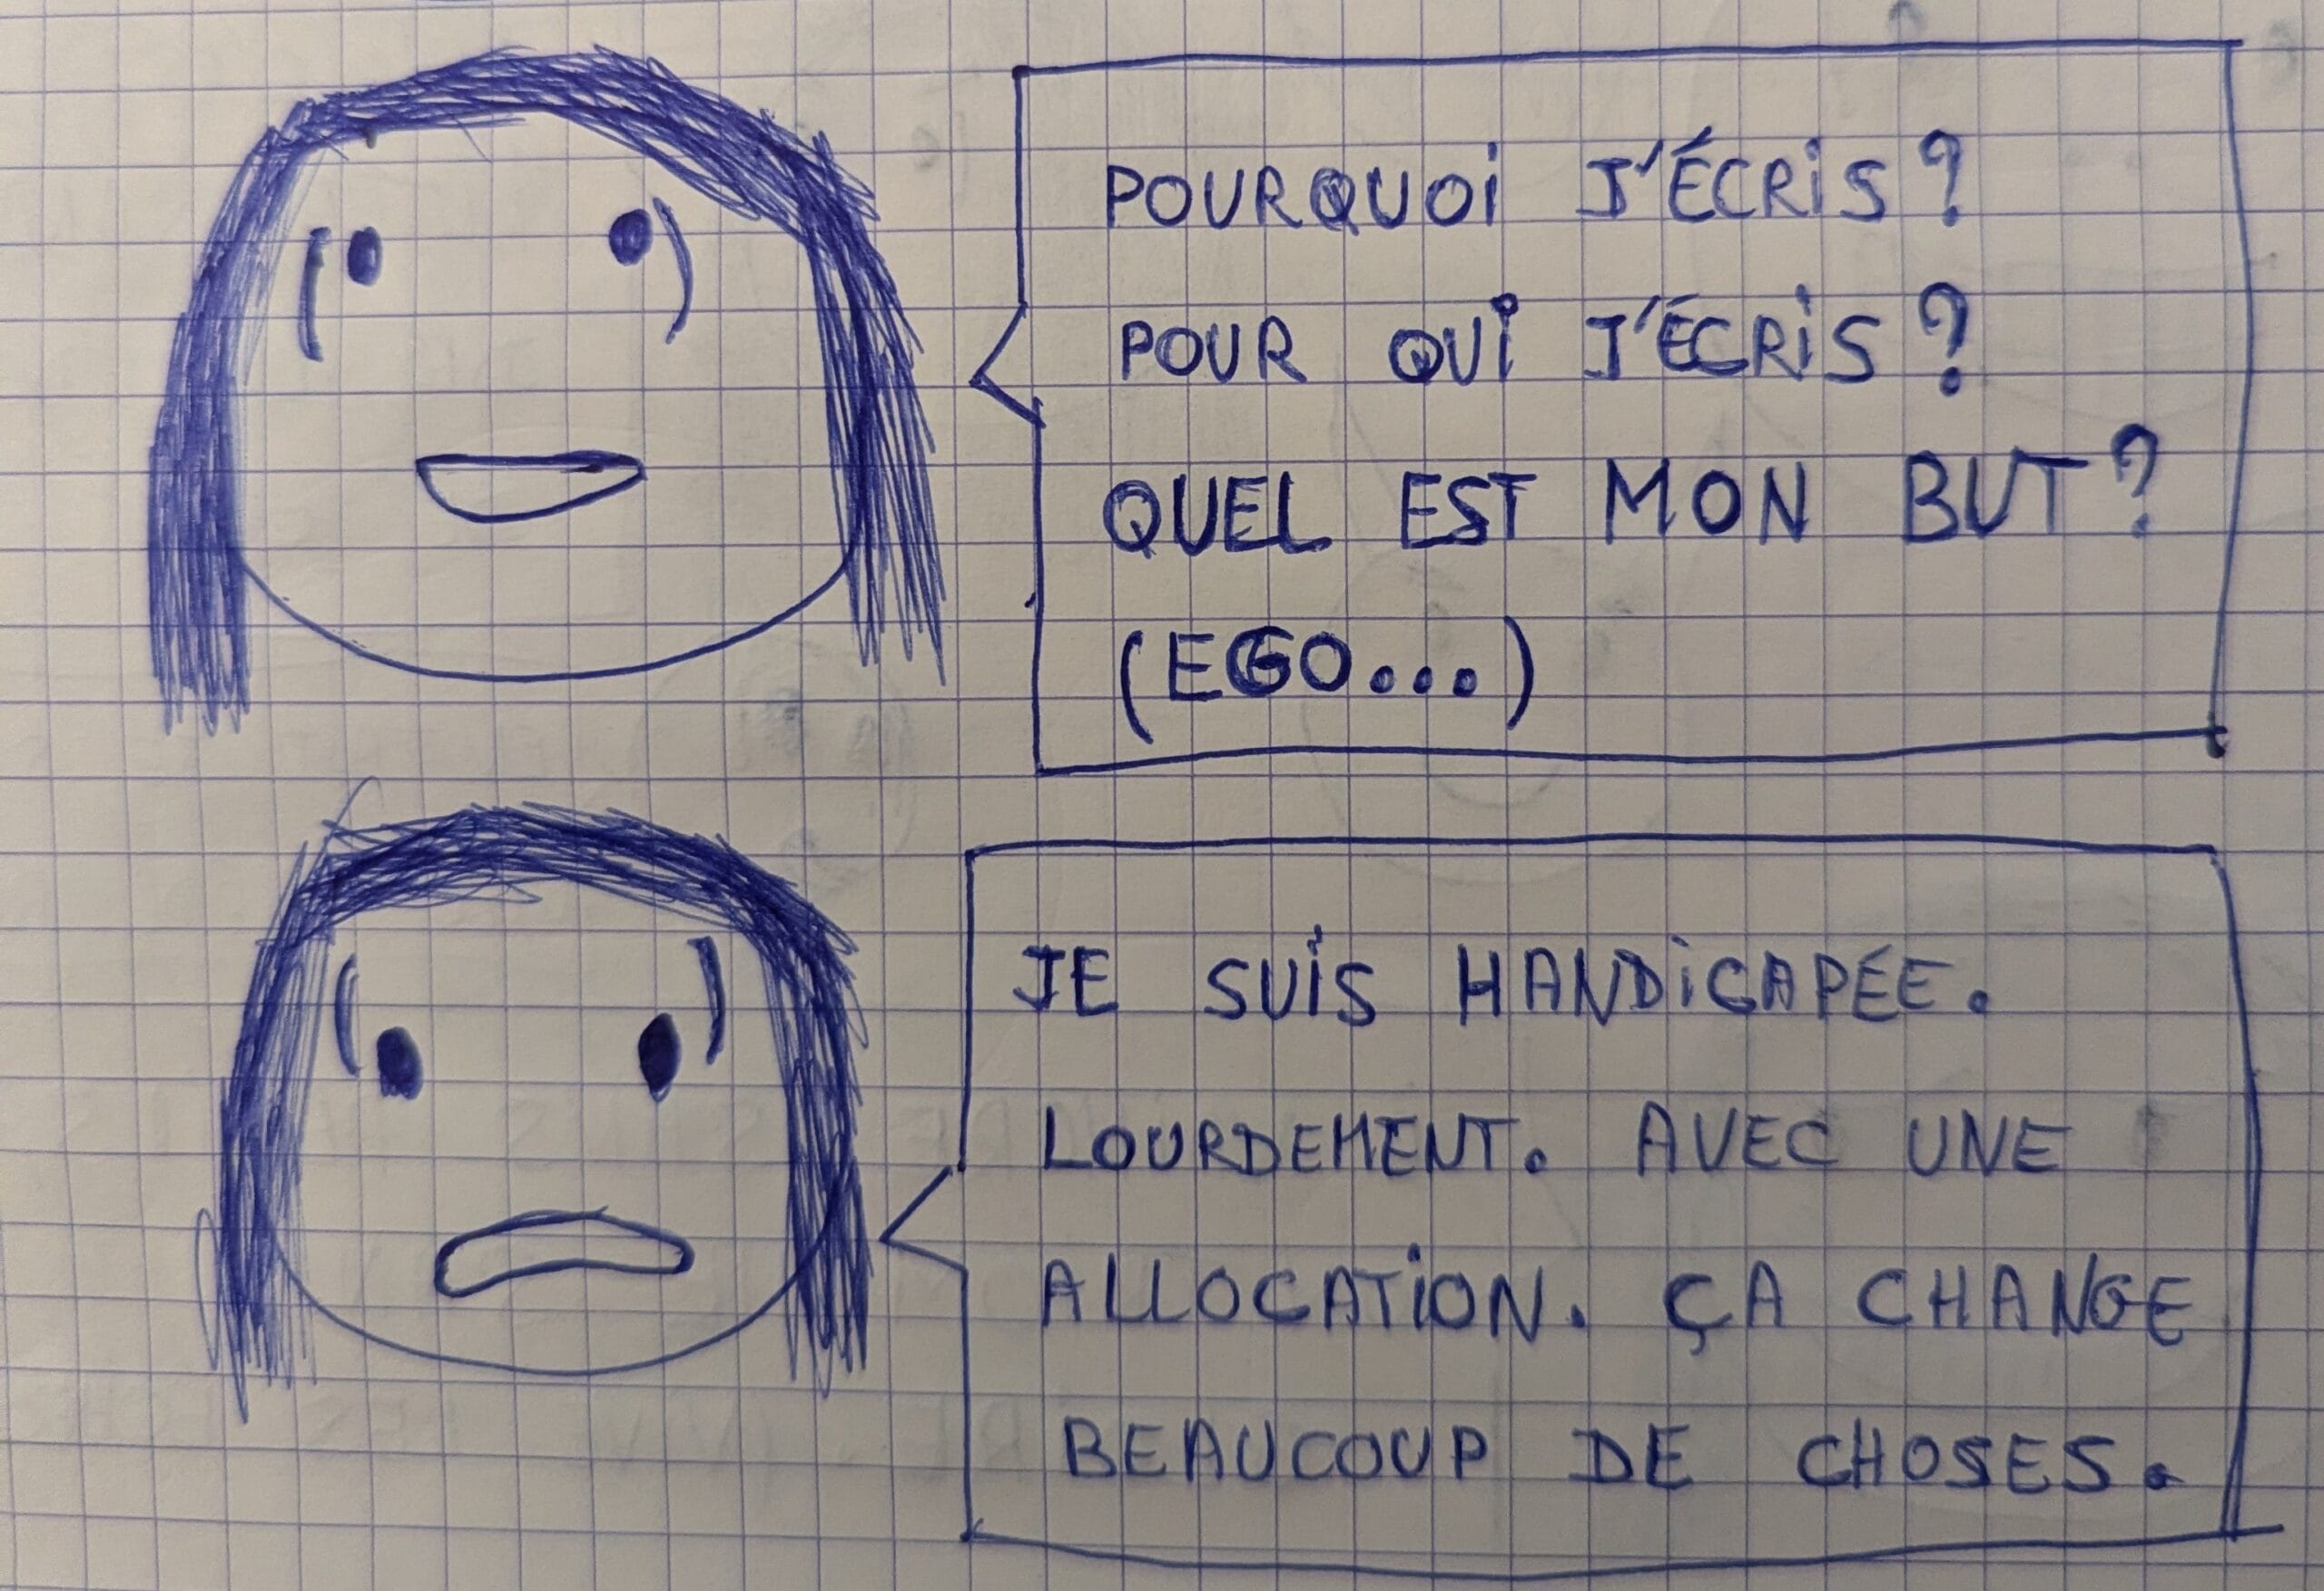 POURQUOI J'ÉCRIS ?
POUR QUI J'ÉCRIS ?
QUEL EST MON BUT ?
(EGO...)
JE SUIS HANDICAPÉE.
LOURDEMENT. AVEC UNE
ALLOCATION. ÇA CHANGE
BEAUCOUP DE CHOSES.